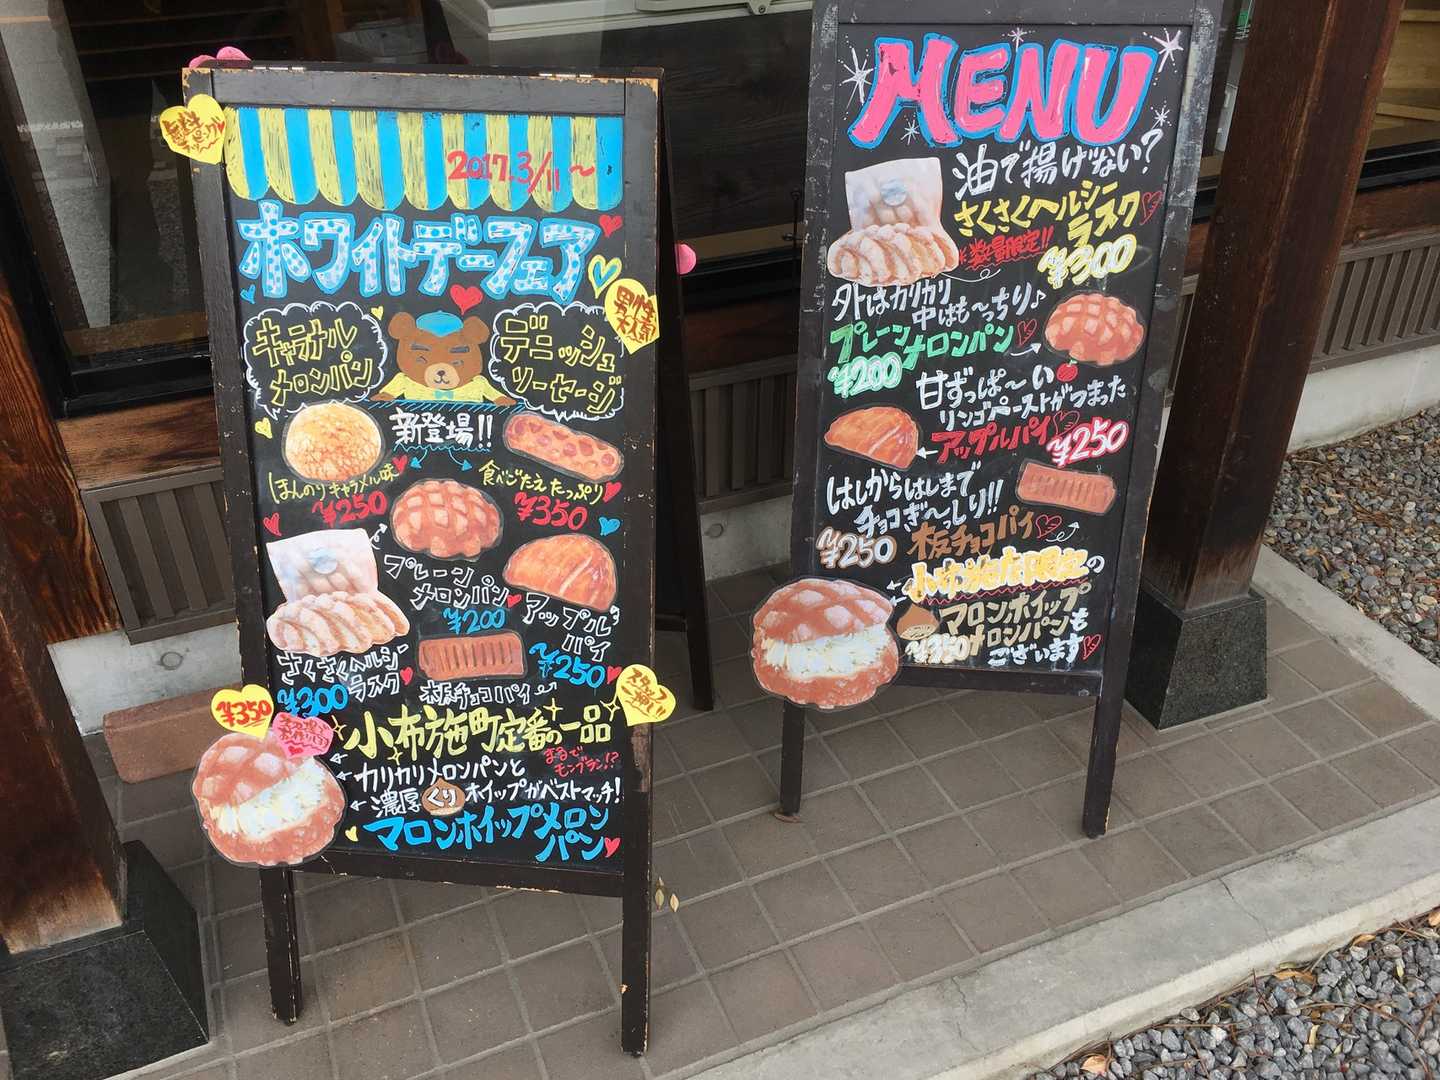 2017.3/11~
ホワイトデーフェア
男性
大人気
キャラメル
メロンパン
デニッシュ
ソーセージ
新登場!!
ほんのりキャラメル味
¥250
食べごたえたっぷり
¥350
プレーン
メロンパン
¥200
アップル
パイ
¥250
さくさくヘルシー
ラスク
¥300
板チョコパイ
スタッフ
一押し!!
¥350
小布施町定番の一品
まるで
モンブラン!?
カリカリメロンパンと
濃厚くりホイップがベストマッチ!
マロンホイップメロン
パン
MENU
油で揚げない?
さくさくヘルシー
ラスク
*数量限定!!
¥300
外はカリカリ
中はも〜っちり♪
プレーン
メロンパン
¥200
甘ずっぱ〜い
リンゴペーストがつまった
アップルパイ
¥250
はしからはしまで
チョコぎ〜っしり!!
¥250
板チョコパイ
小布施店限定の
マロンホイップ
¥350
メロンパンも
ございます